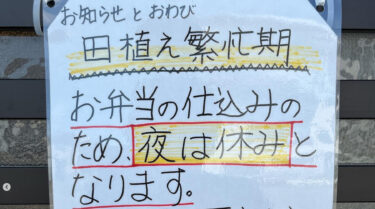 お知らせとおわび
田植え繁忙期
お弁当の仕込みの
ため、夜は休みと
なります。